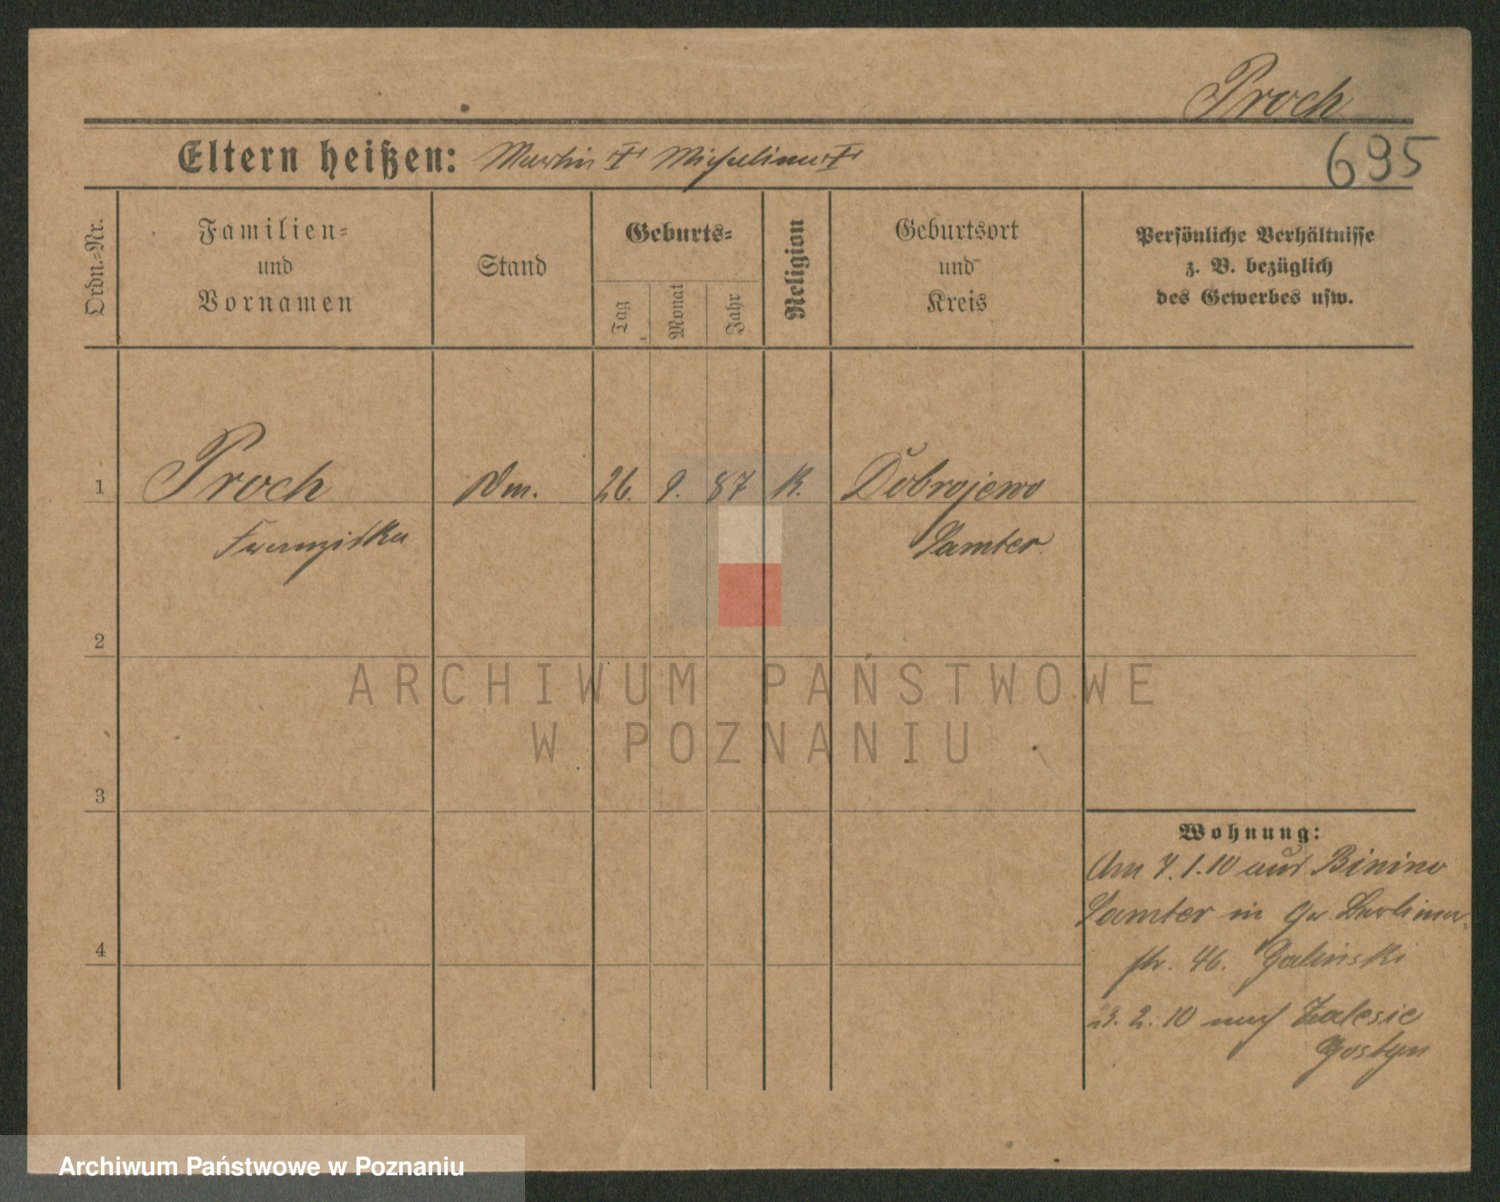 Proch
695
Eltern heißen: Martin † Michalina †
Ordn.-Nr.
Familien-
und
Vornamen
Stand
Geburts-
Tag
Monat
Jahr
Religion
Geburtsort
und
Kreis
Persönliche Verhältnisse
z. B. bezüglich
des Gewerbes usw.
1 Proch 26. 9. 87 K. Dobrojewo
Franziska Samter
2
ARCHIWUM PAŃSTWOWE
W POZNANIU
3
Wohnung:
Am 7.1.10 aus Binino
Samter in Gr. Berliner-
4
str. 46. Galinski
23. 2. 10 nach Zalesie
Gostyn
Archiwum Państwowe w Poznaniu